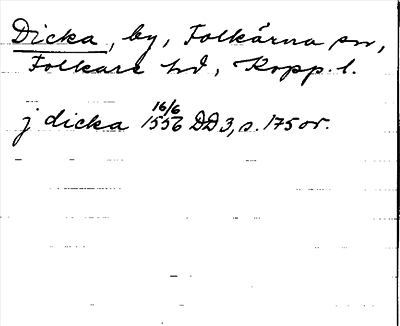 Dicka, by, Folkärna sn,
Folkare hd, Kopp. l.
j dicka 16/6 1556 DD3, s. 175 or.